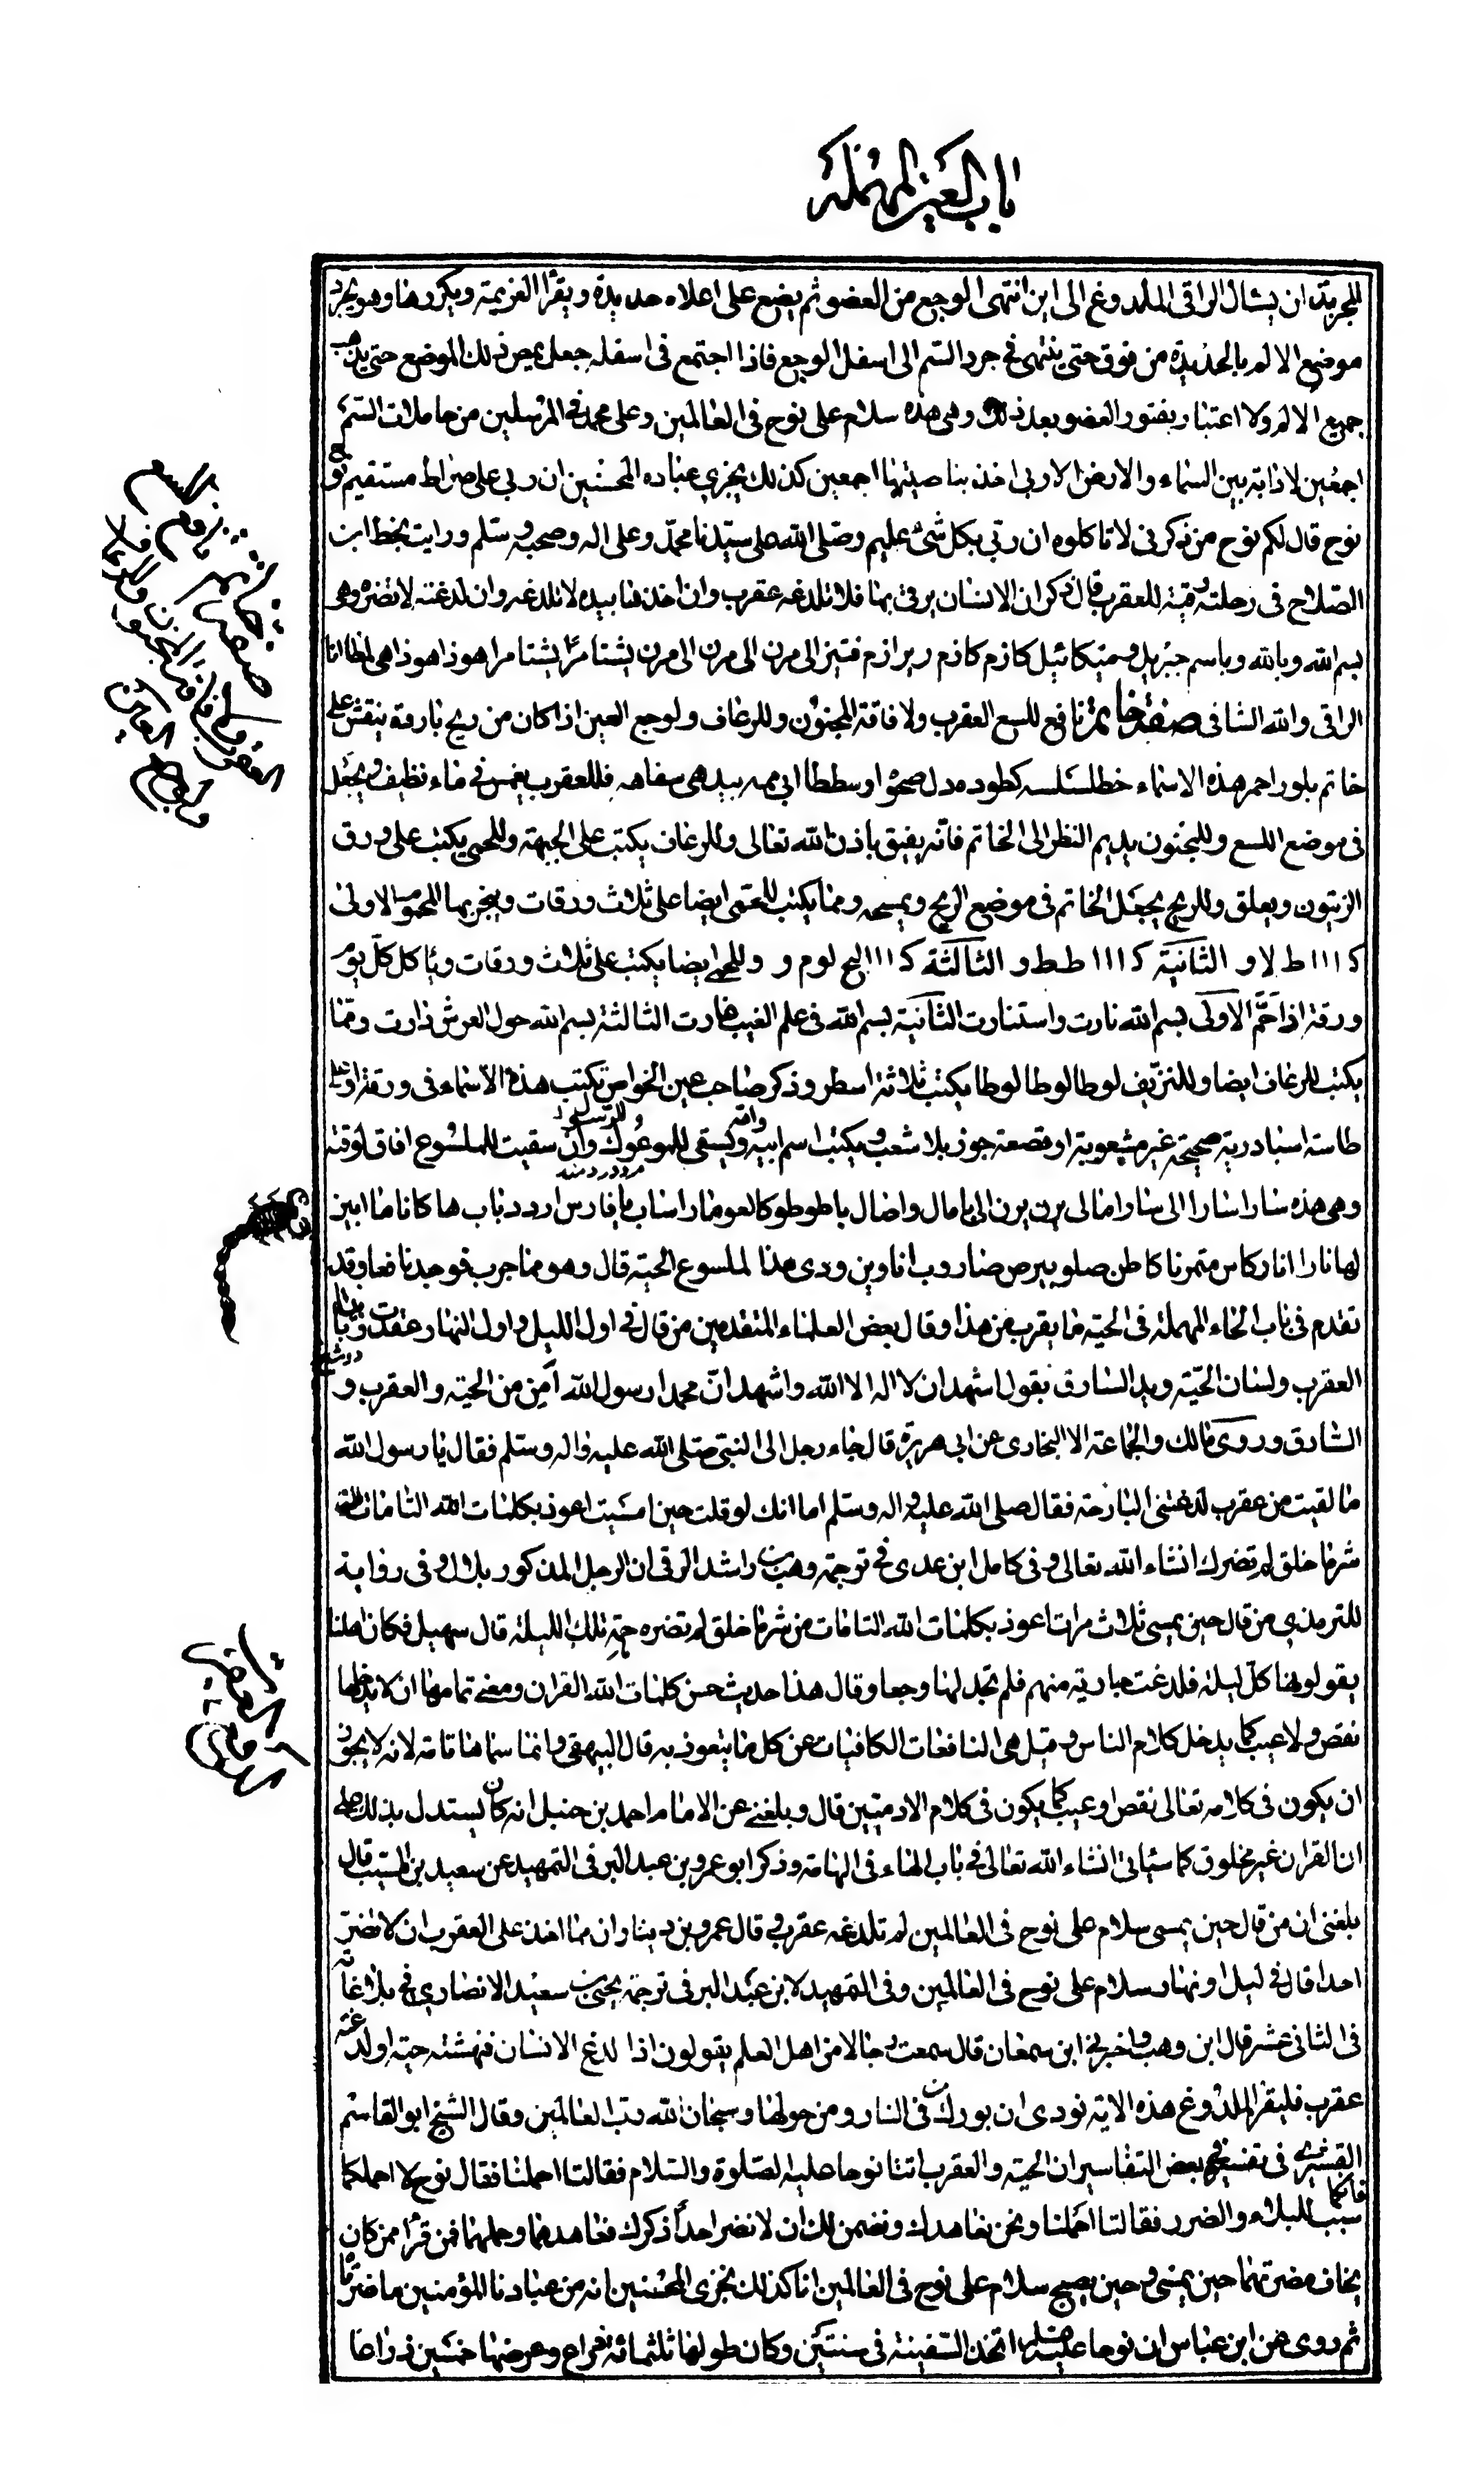 باب العين المهملة
المجربة ان يسال الراقى الملدوغ الى اين انتهى الوجع من العضو ثم يضع على اعلاه حديدة ويقرأ العزيمة ويكررها وهو يجرد
موضع الالم بالحديدة من فوق حتى ينتهى فى جرد السم الى اسفل الوجع فاذا اجتمع فى اسفله جعل يمص ذلك الموضع حتى يذهب
جميع الالم ولا اعتبار بفتور العضو بعد ذلك وهى هذه سلام على نوح فى العالمين وعلى محمد فى المرسلين من حاملات السم
اجمعين لا دابة بين السماء والارض الا ربى اخذ بناصيتها اجمعين كذلك يجزي عباده المحسنين ان ربي على صراط مستقيم نوح
نوح قال لكم نوح من ذكرنى لا تاكلوه ان ربي بكل شئ عليم وصلى الله على سيدنا محمد وعلى اله وصحبه وسلم ورايت بخط ابن
الصلاح فى رحلته رقية للعقرب قال ذكر ان الانسان يرقى بها فلا تلدغه عقرب وان اخذها بيده لا تلدغه وان لدغته لا تضره وهى
بسم الله وبالله وباسم جبريل وميكائيل كازم كازم ريزازم فتيز الى مرن الى مرن الى مرن يشتامرا يشتامرا هوذا هوذا هى لمظا انا
الراقى والله الشافى صفة خاتم نافع للسع العقرب ولافاقة المجنون وللرعاف ولوجع العين اذا كان من ريح باردة ينقش على
خاتم بلور احمر هذه الاسماء خطلسلسه كطوده دل صحوا وسططا ابى مهه بيدهى سفاهه فللعقرب يغمس فى ماء نظيف ويجعل
فى موضع اللسع وللمجنون يديم النظر الى الخاتم فانه يفيق باذن الله تعالى وللرعاف يكتب على الجبهة وللحمى يكتب على ورق
الزيتون ويعلق وللريح يجعل الخاتم فى موضع الريح ويمسحه ومما يكتب للحمى ايضا على ثلاث ورقات ويبخر بها المحموم الاولى
ك ااا ط لا و الثانية ك ااا ط ط و الثالثة ك ااا ابج لوم و وللحمى ايضا يكتب على ثلاث ورقات وياكل كل يوم
ورقة اذا حم الاولى بسم الله نارت واستنارت الثانية بسم الله فى علم الغيب غارت الثالثة بسم الله حول العرش دارت ومما
يكتب للرعاف ايضا وللنزيف لوطا لوطا لوطا يكتب ثلاثة اسطر وذكر صاحب عين الخواص تكتب هذه الاسماء فى ورقة او على
طاسة اسبادرية صحيحة غير مشعوبة او قصعة جوز بلا شعب ويكتب اسم ابيه وامه ويسقى للموعوك وللرسول وان سقيت للملسوع افاق لوقته
وهى هذه سارا سارا الى سارا مالى يرن يرن الى بامال واصال باطوطو كالعو مارا ساب يا فارس اردد باب ها كانا ما ابين
لها نارا انار كاس متمرنا كاطن صلوبيرص صاروب اناوين ودى هذا لملسوع الحية قال وهو مما جرب فوجد نافعا وقد
تقدم فى باب الحاء المهملة فى الحية ما يقرب من هذا وقال بعض العلماء المتقدمين من قال فى اول الليل واول النهار عقدت زبان
العقرب ولسان الحية ويد السارق بقول اشهد ان لا اله الا الله واشهد ان محمدا رسول الله امن من الحية والعقرب و
السارق وروى مالك والجماعة الا البخارى عن ابى هريرة قال جاء رجل الى النبى صلى الله عليه واله وسلم فقال يا رسول الله
ما لقيت من عقرب لدغتنى البارحة فقال صلى الله عليه واله وسلم اما انك لو قلت حين امسيت اعوذ بكلمات الله التامات من
شر ما خلق لم تضرك انشاء الله تعالى وفى كامل ابن عدى فى ترجمة وهب بن راشد الرقى ان الرجل المذكور بلال وفى رواية
للترمذي من قال حين يمسى ثلاث مرات اعوذ بكلمات الله التامات من شر ما خلق لم تضره حمة تلك الليلة قال سهيل فكان اهلنا
يقولونها كل ليلة فلدغت جارية منهم فلم تجد لها وجعا وقال هذا حديث حسن كلمات الله القران ومعنى تمامها ان لا يدخلها
نقص ولا عيب كما يدخل كلام الناس وقيل هى النافعات الكافيات عن كل ما يتعوذ به قال البيهقى وانما سماها تامة لانه لا يجوز
ان يكون فى كلامه تعالى نقص او عيب كما يكون فى كلام الادميين قال وبلغنى عن الامام احمد بن حنبل انه كان يستدل بذلك على
ان القران غير مخلوق كما سياتى انشاء الله تعالى فى باب الهاء فى الهامة وذكر ابو عمر بن عبد البر فى التمهيد عن سعيد بن المسيب قال
بلغنى ان من قال حين يمسى سلام على نوح فى العالمين لم تلدغه عقرب وقال عمرو بن دينار ان مما اخذ على العقرب ان لا تضر
احدا قال فى ليل او نهار سلام على نوح فى العالمين وفى التمهيد لابن عبد البر فى ترجمة يحيى بن سعيد الانصاري فى بلاغاته
فى الثانى عشر قال ابن وهب واخبرنى ابن سمعان قال سمعت رجالا من اهل العلم يقولون اذا لدغ الانسان فنهشته حية او لدغته
عقرب فليقرا الملدوغ هذه الاية نودى ان بورك من فى النار ومن حولها وسبحان الله رب العالمين وقال الشيخ ابو القاسم
القشيرى فى تفسيره بعض التفاسير ان الحية والعقرب اتتا نوحا عليه الصلوة والسلام فقالتا احملنا فقال نوح لا احملكما
فانكما سبب للبلاء والضرر فقالتا احملنا ونحن نعاهدك ونضمن لك ان لا نضر احدا ذكرك فعاهدهما وحملهما فمن قرا ممن كان
يخاف مضرتهما حين يمسى وحين يصبح سلام على نوح فى العالمين انا كذلك نجزى المحسنين انه من عبادنا المؤمنين ما ضرتاه
ثم روى عن ابن عباس ان نوحا عليه السلام اتخذ السفينة فى سنتين وكان طولها ثلثمائة ذراع وعرضها خمسين ذراعا